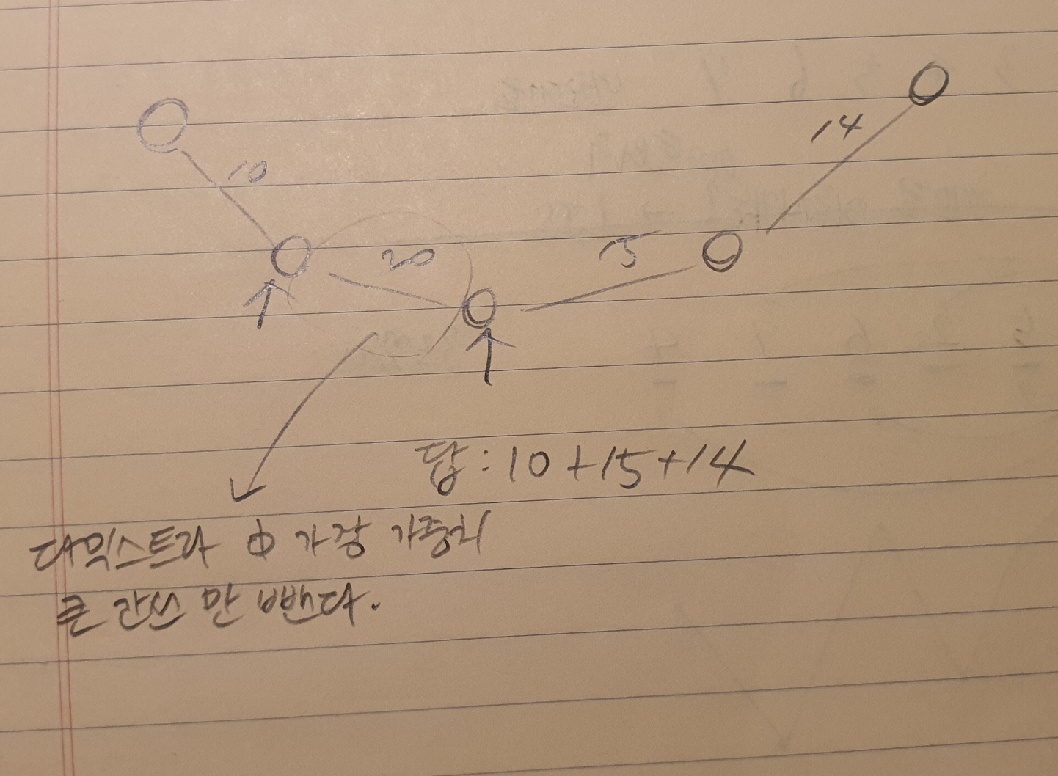 14
10
20 15
답 : 10 + 15 + 14
다익스트라 中 가장 가중치
큰 간쓰 만 뺀다.